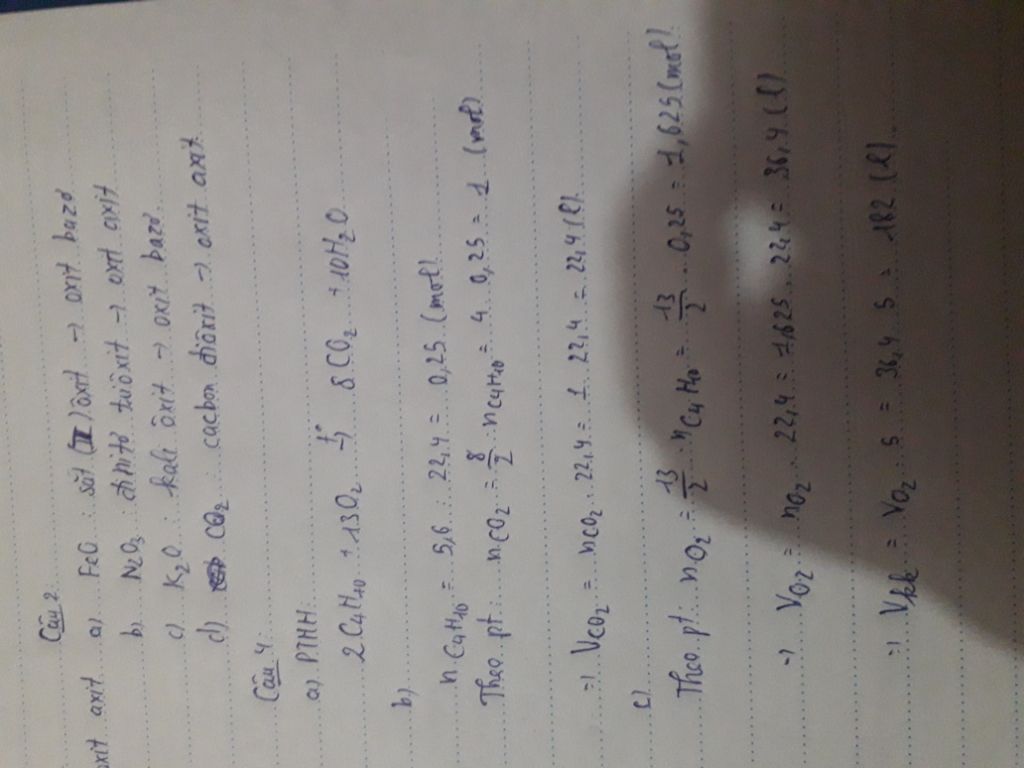 Câu 2
oxit axit. a) FeO : sắt (II) ôxit → oxit bazơ
b) N2O3 : đinitơ triôxit → oxit axit
c) K2O : kali ôxit → oxit bazơ
d) CO2 : cacbon điôxit → oxit axit
Câu 4
a) PTHH
2C4H10 + 13O2 t°→ 8CO2 + 10H2O
b)
n C4H10 = 5,6 : 22,4 = 0,25 (mol)
Theo pt: nCO2 = 8/2 . nC4H10 = 4 . 0,25 = 1 (mol)
=> VCO2 = nCO2 . 22,4 = 1 . 22,4 = 22,4 (l)
c)
Theo pt: nO2 = 13/2 . nC4H10 = 13/2 . 0,25 = 1,625 (mol)
=> VO2 = nO2 . 22,4 = 1,625 . 22,4 = 36,4 (l)
=> Vkk = VO2 . 5 = 36,4 . 5 = 182 (l)